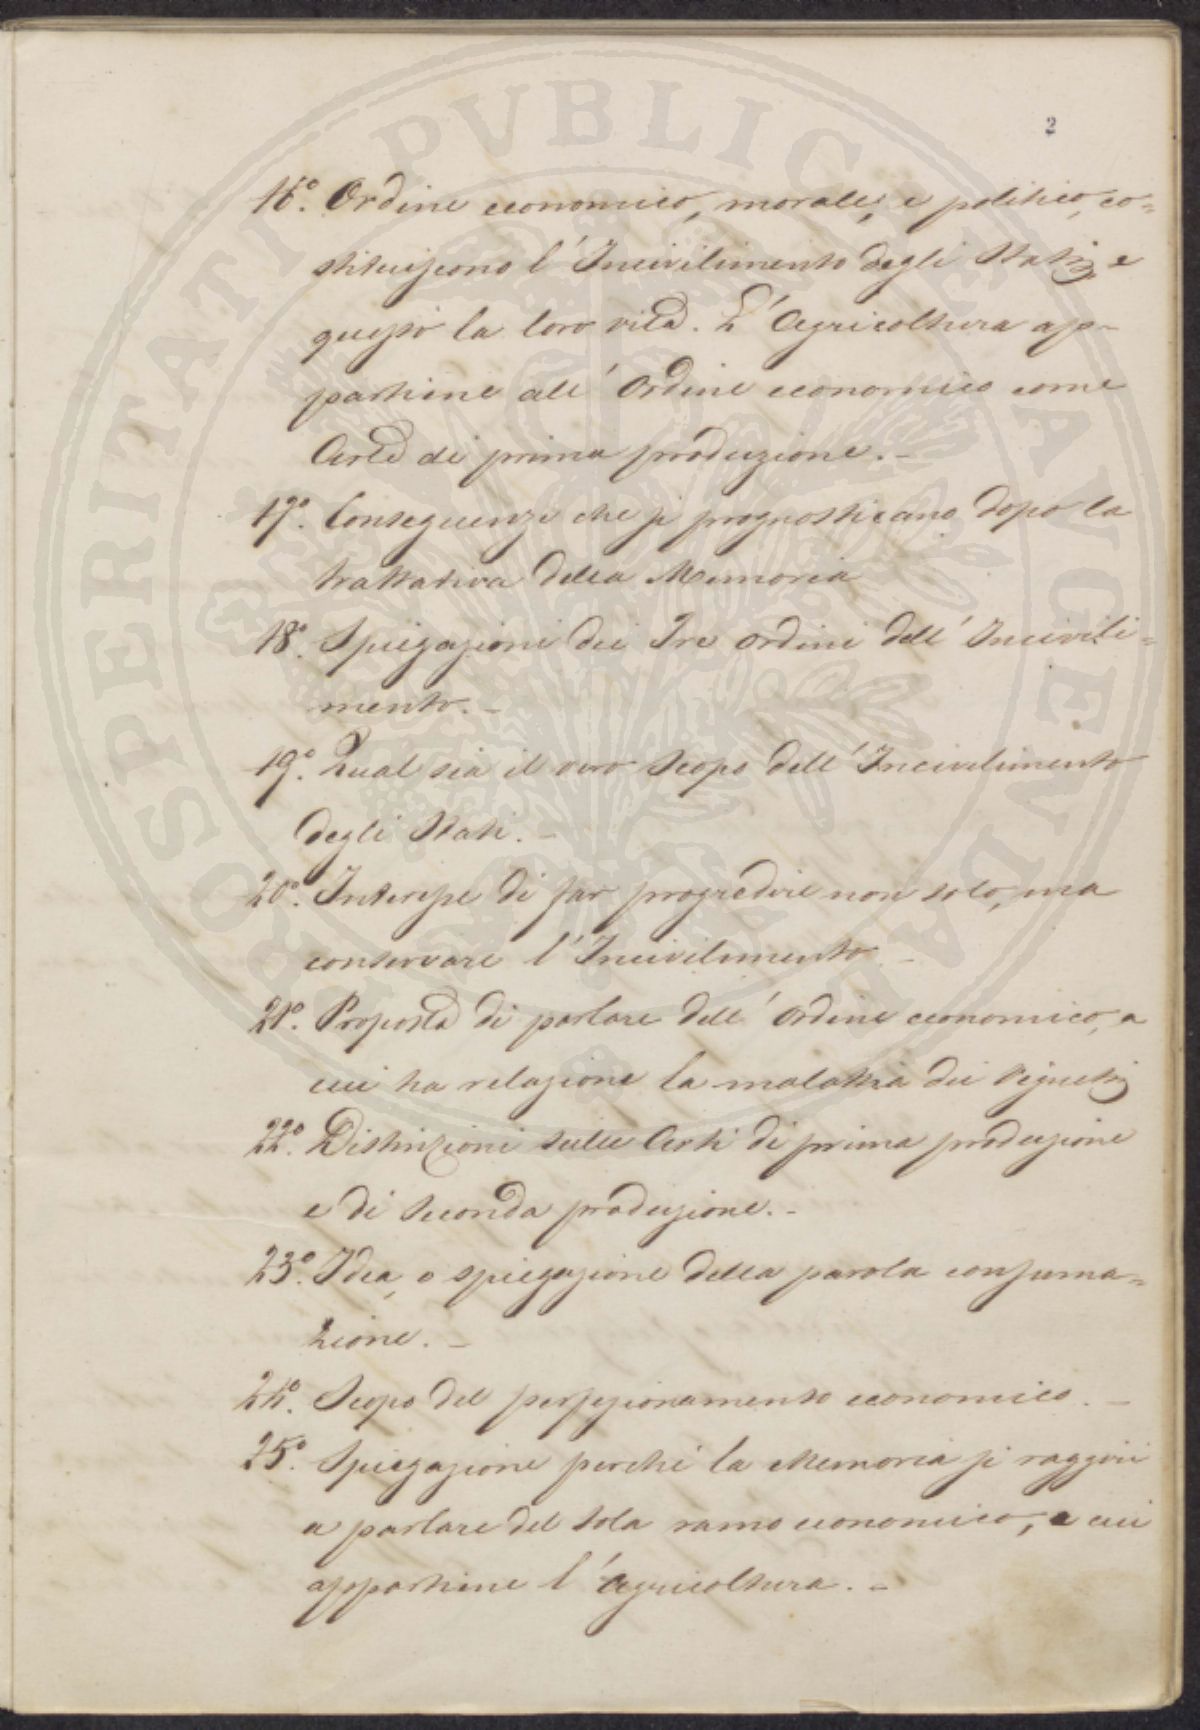 PROSPERITATI PUBLICAE AUGENDAE
2
16.° Ordine economico, morale, e politico, co=
stituiscono l'Incivilimento degli Stati, e
questo la loro vita. L'Agricoltura ap-
partiene all'Ordine economico come
Arte di prima produzione.-
17.° Conseguenze che si prognosticano dopo la
trattativa della Memoria
18.° Spiegazioni dei Tre ordini dell'Incivili=
mento.-
19.° Qual sia il vero Scopo dell'Incivilimento
degli Stati.-
20.° Interesse di far progredire non solo, ma
conservare l'Incivilimento -
21.° Proposta di parlare dell'Ordine economico, a
cui ha relazione la malattia dei Vigneti
22.° Distinzioni sulle Arti di prima produzione
e di Seconda produzione.-
23.° Idea, o spiegazione della parola consuma=
zione.-
24.° Scopo del perfezionamento economico.-
25.° Spiegazione perchè la Memoria si raggiri
a parlare del solo ramo economico, a cui
appartiene l'Agricoltura.-